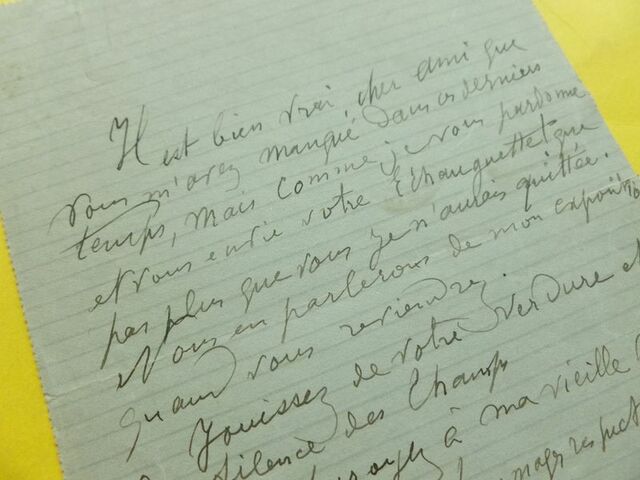 Il est bien vrai, cher ami que
vous m'avez manqué dans ces derniers
temps, mais comme je vous pardonne
et vous envie votre Echauguette! que
pas plus que vous je n'aurais quittée.
Nous en parlerons de mon exposition
quand vous reviendrez.
Jouissez de votre verdure et
silence des Champs
à ma vieille